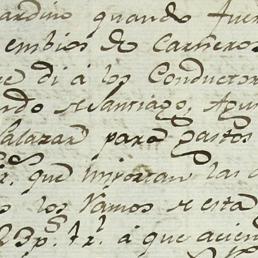 jardino quando fuer
embios de Carneros
e di á los Conductor
ndo Santiago, Agus
Salazar para gastos
r.s que importan las
s los Ramos de esta
23 p.s 7 r.s á que acien